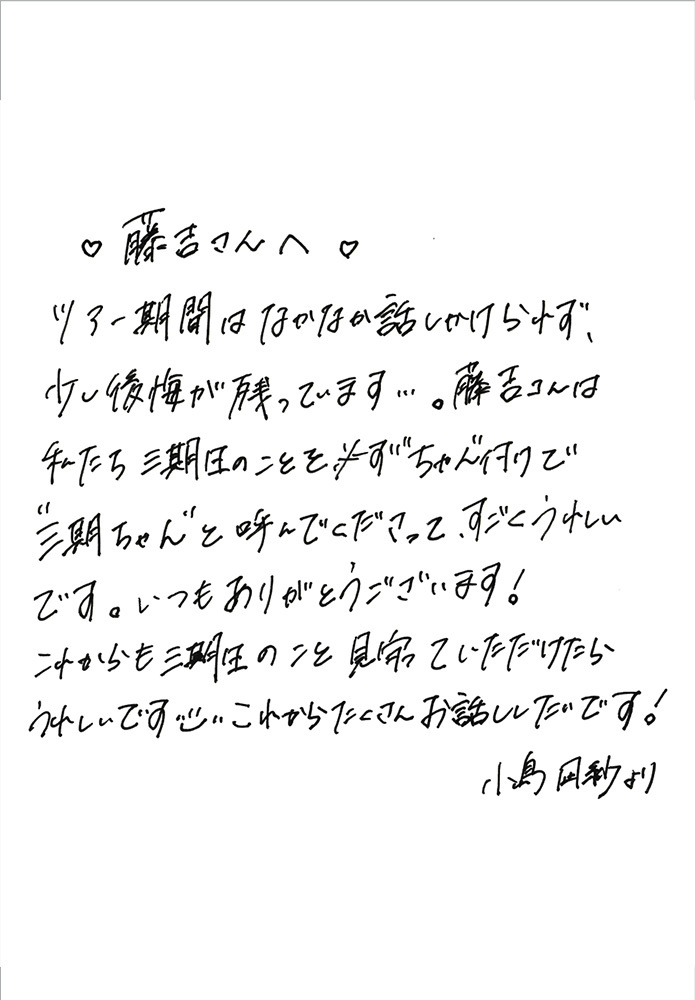 ♡ 藤吉さんへ ♡
ツアー期間はなかなか話しかけられず、
少し後悔が残っています…。藤吉さんは
私たち三期生のことを必ず"ちゃん"付けで
"三期ちゃん"と呼んでくださって、すごくうれしい
です。いつもありがとうございます!
これからも三期生のこと見守っていただけたら
うれしいです これからたくさんお話ししたいです!
小島凪紗より